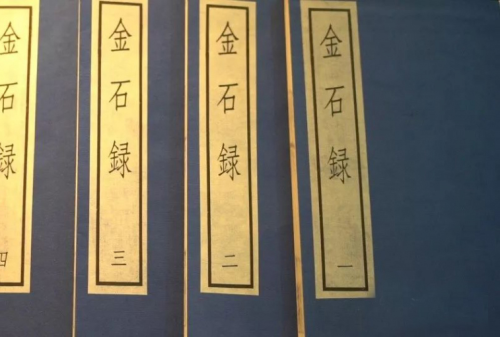 金石録
一
金石録
二
金石録
三
金石録
四